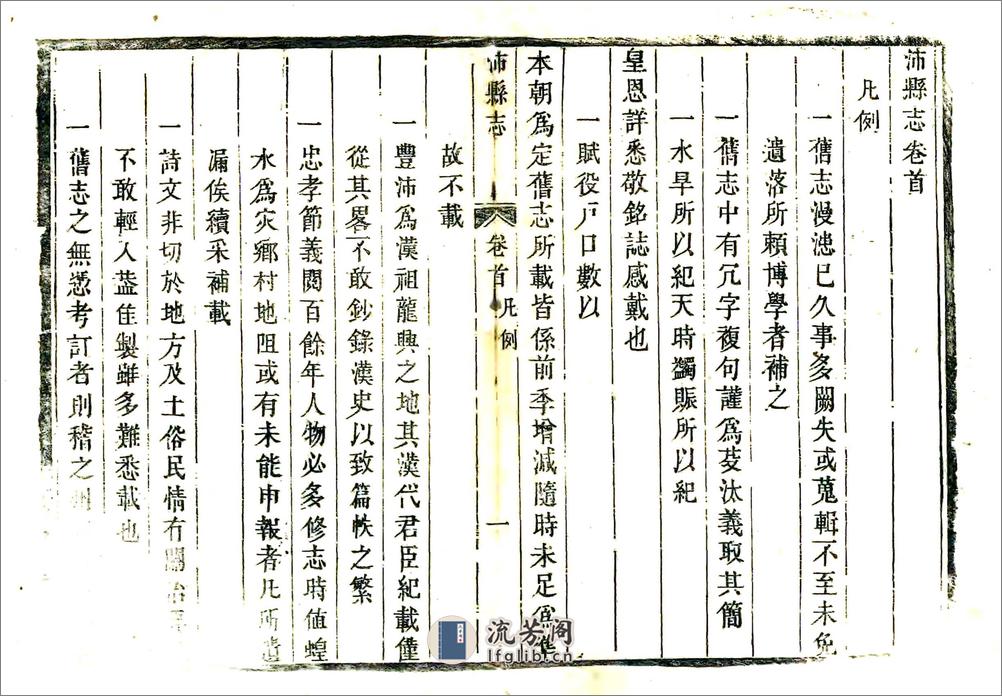 沛縣志卷首
凡例
一舊志漫漶已久事多闕失或蒐輯不至未免
遺落所賴博學者補之
一舊志中有冗字複句謹為芟汰義取其簡
一水旱所以紀天時蠲賑所以紀
皇恩詳悉敬銘誌感戴也
一賦役戶口數以
本朝為定舊志所載皆係前季增減隨時未足為準
沛縣志 卷首 凡例 一
故不載
一豐沛為漢祖龍興之地其漢代君臣紀載僅
從其畧不敢鈔錄漢史以致篇帙之繁
一忠孝節義閱百餘年人物必多修志時值蝗
水為灾鄉村地阻或有未能申報者凡所遺
漏俟續采補載
一詩文非切於地方及土俗民情有關治
不敢輕入蓋佳製雖多難悉載也
一舊志之無憑考訂者則稽之州
流芳阁
lfglib.cn